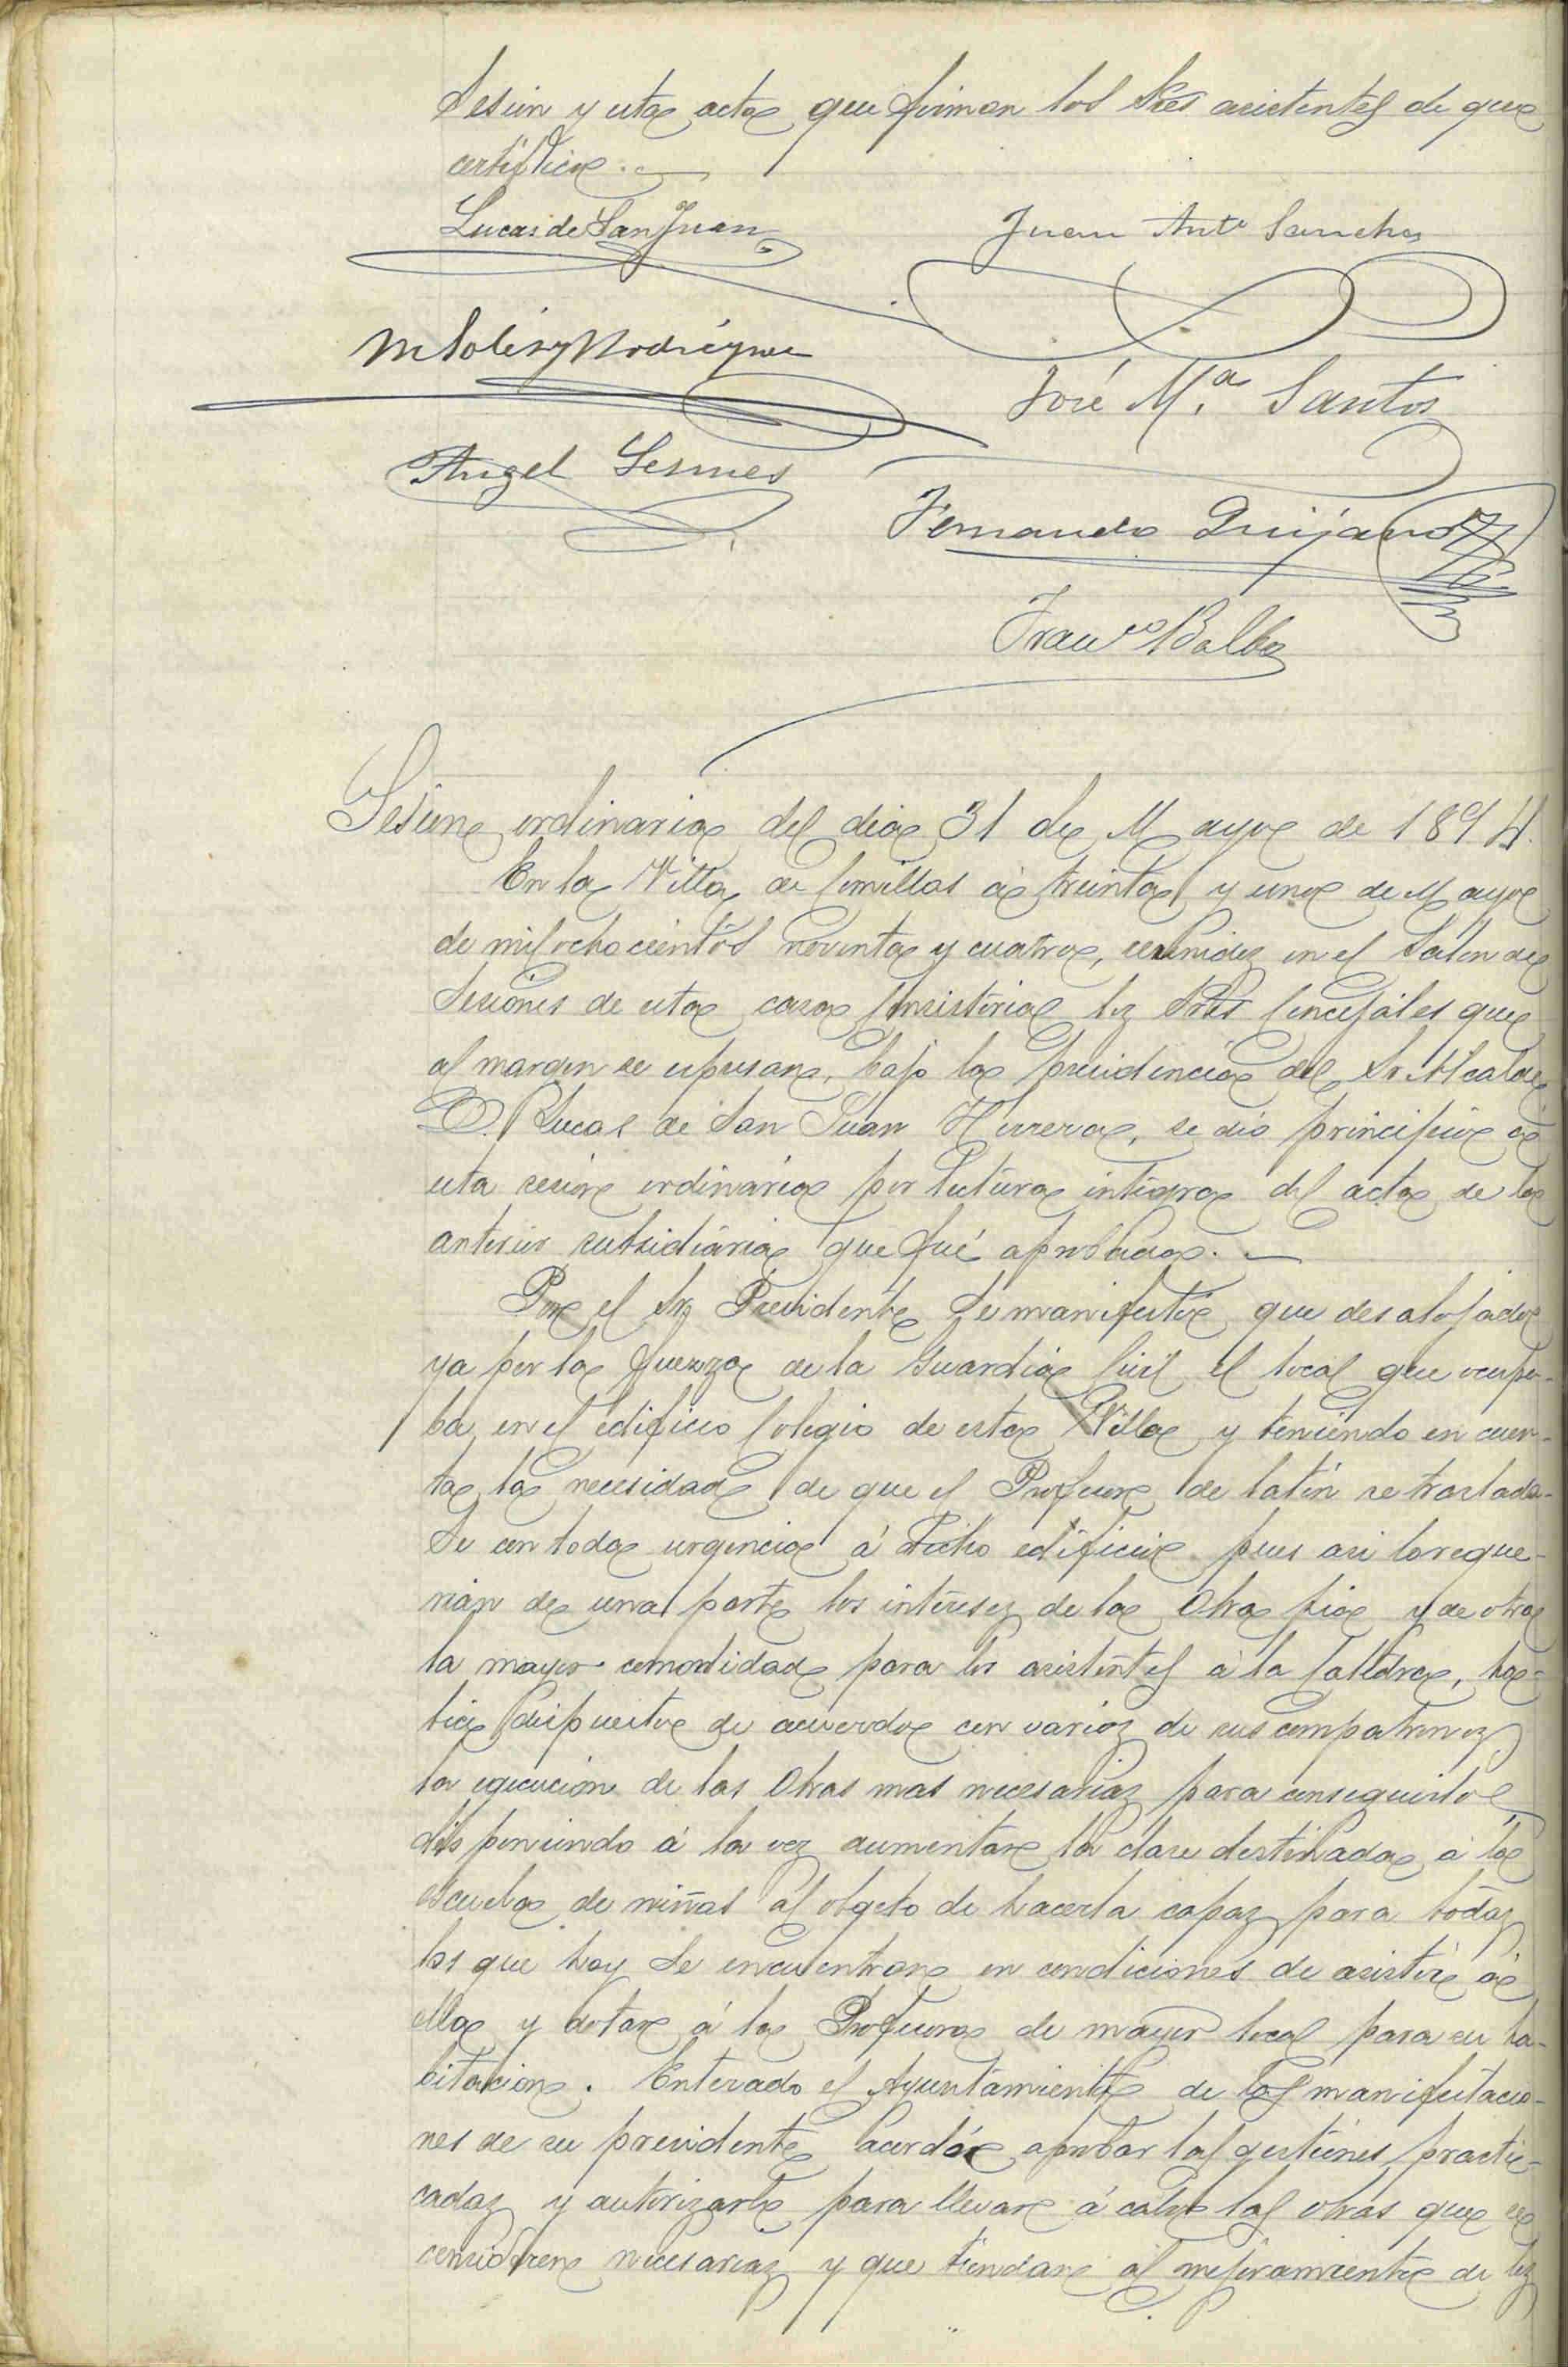 Sesion y esta acta que firman los Sres asistentes de que
certifico.
Lucas de San Juan
Juan Ant.º Sanchez
M Solis y Rodriguez
José M.ª Santos
Angel Lesmes
Fernando Quijano
Fran.co Balbas
Sesion ordinaria del dia 31 de Mayo de 1894.
En la Villa de Comillas á treinta y uno de Mayo
de mil ochocientos noventa y cuatro, reunidos en el Salon de
Sesiones de esta casa Consistorial los Sres Concejales que
al margen se espresan, bajo la presidencia del Sr. Alcalde
D. Lucas de San Juan Herrera, se dió principio á
esta sesion ordinaria por lectura integra del acta de la
anterior subsidiaria que fué aprobada.
Por el Sr. Presidente se manifestó que desalojado
ya por la fuerza de la Guardia Civil el local que ocupa-
ba en el edificio Colegio de esta Villa y teniendo en cuen-
ta la necesidad de que el Profesor de latín se traslada-
se con toda urgencia á dicho edificio pues asi lo reque-
rian de una parte los intereses de la Obra pia y de otra
la mayor comodidad para los asistentes á la Catedra, ha-
bia dispuesto de acuerdo con varios de sus compatronos
la egecución de las obras mas necesarias para conseguirlo
disponiendo á la vez aumentar la clase destinada á la
escuela de niñas al obgeto de hacerla capaz para todas
las que hoy se encuentran en condiciones de asistir á
ella y dotar á la Profesora de mayor local para su ha-
bitacion. Enterado el Ayuntamiento de las manifestacio-
nes de su presidente acordó aprobar las gestiones practi-
cadas y autorizarle para llevar á cabo las obras que se
consideren necesarias y que tiendan al mejoramiento de los